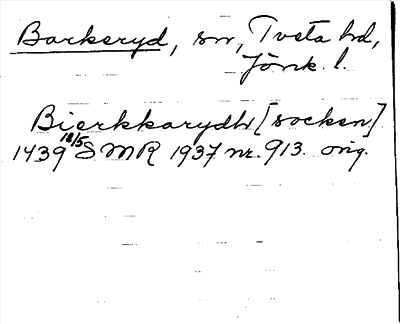 Barkeryd, sn, Tveta hd,
Jönk. l.
Bierkkarydh [socken]
1439 18/5 SMR 1937 nr. 913. orig.